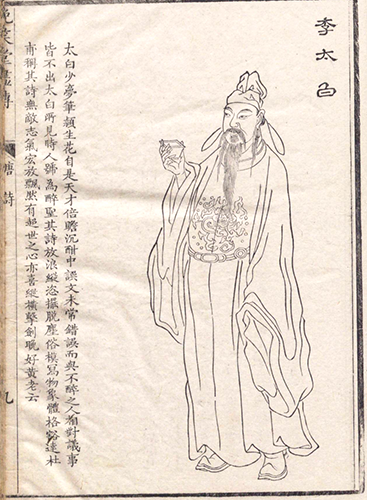 李太白
太白少夢筆頭生花自是天才倍贍沉酣中譔文未常錯誤而與不醉之人相對議事
皆不出太白所見時人號為醉聖其詩放浪縱恣擺脫塵俗模寫物象體格豁達杜
甫稱其詩無敵志氣宏放飄然有超世之心亦喜縱橫擊劍晚好黃老云
晚笑堂畫傳
唐詩
九